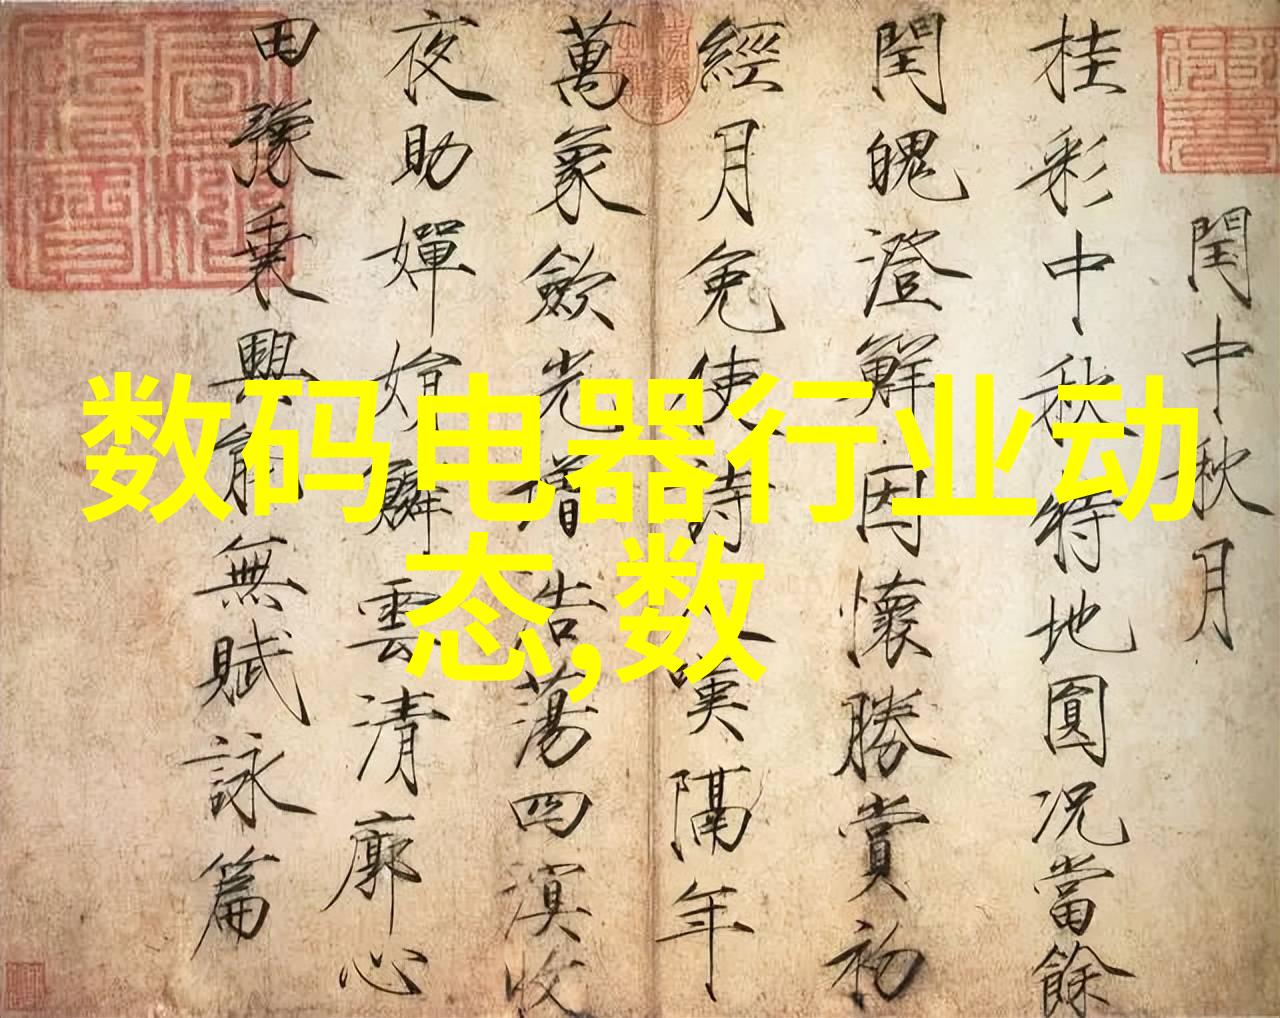 閏中秋月
桂彩中秋特地圓况當餘
閏魄澄鮮因懷勝賞初
經月免使詩人嘆隔年
萬象斂光增浩蕩四溟收
夜助嬋娟鱗雲清廓心
田豫乘興能無賦詠篇
数码电器行业动
态,数